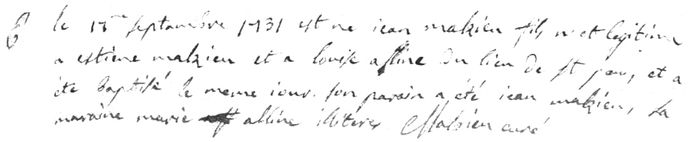 le 15me septembre 1731 est ne iean malzieu fils n et legitime
a estiene malzieu et a louise alline du lieu de st pau, et a
été baptisé le meme iour. son parain a été iean malzieu, la
maraine marie alline illiteres. Malzieu curé